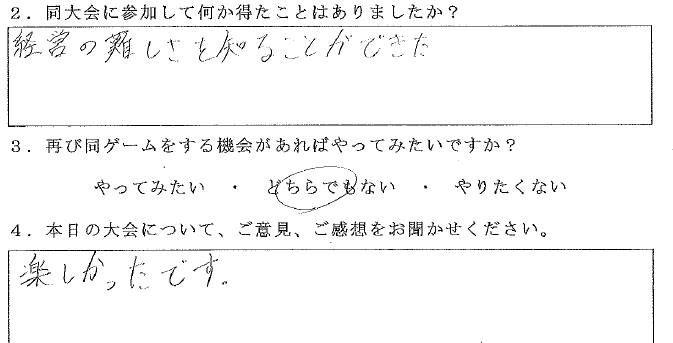 2．同大会に参加して何か得たことはありましたか？
経営の難しさを知ることができた
3．再び同ゲームをする機会があればやってみたいですか？
やってみたい ・ どちらでもない ・ やりたくない
4．本日の大会について、ご意見、ご感想をお聞かせください。
楽しかったです。